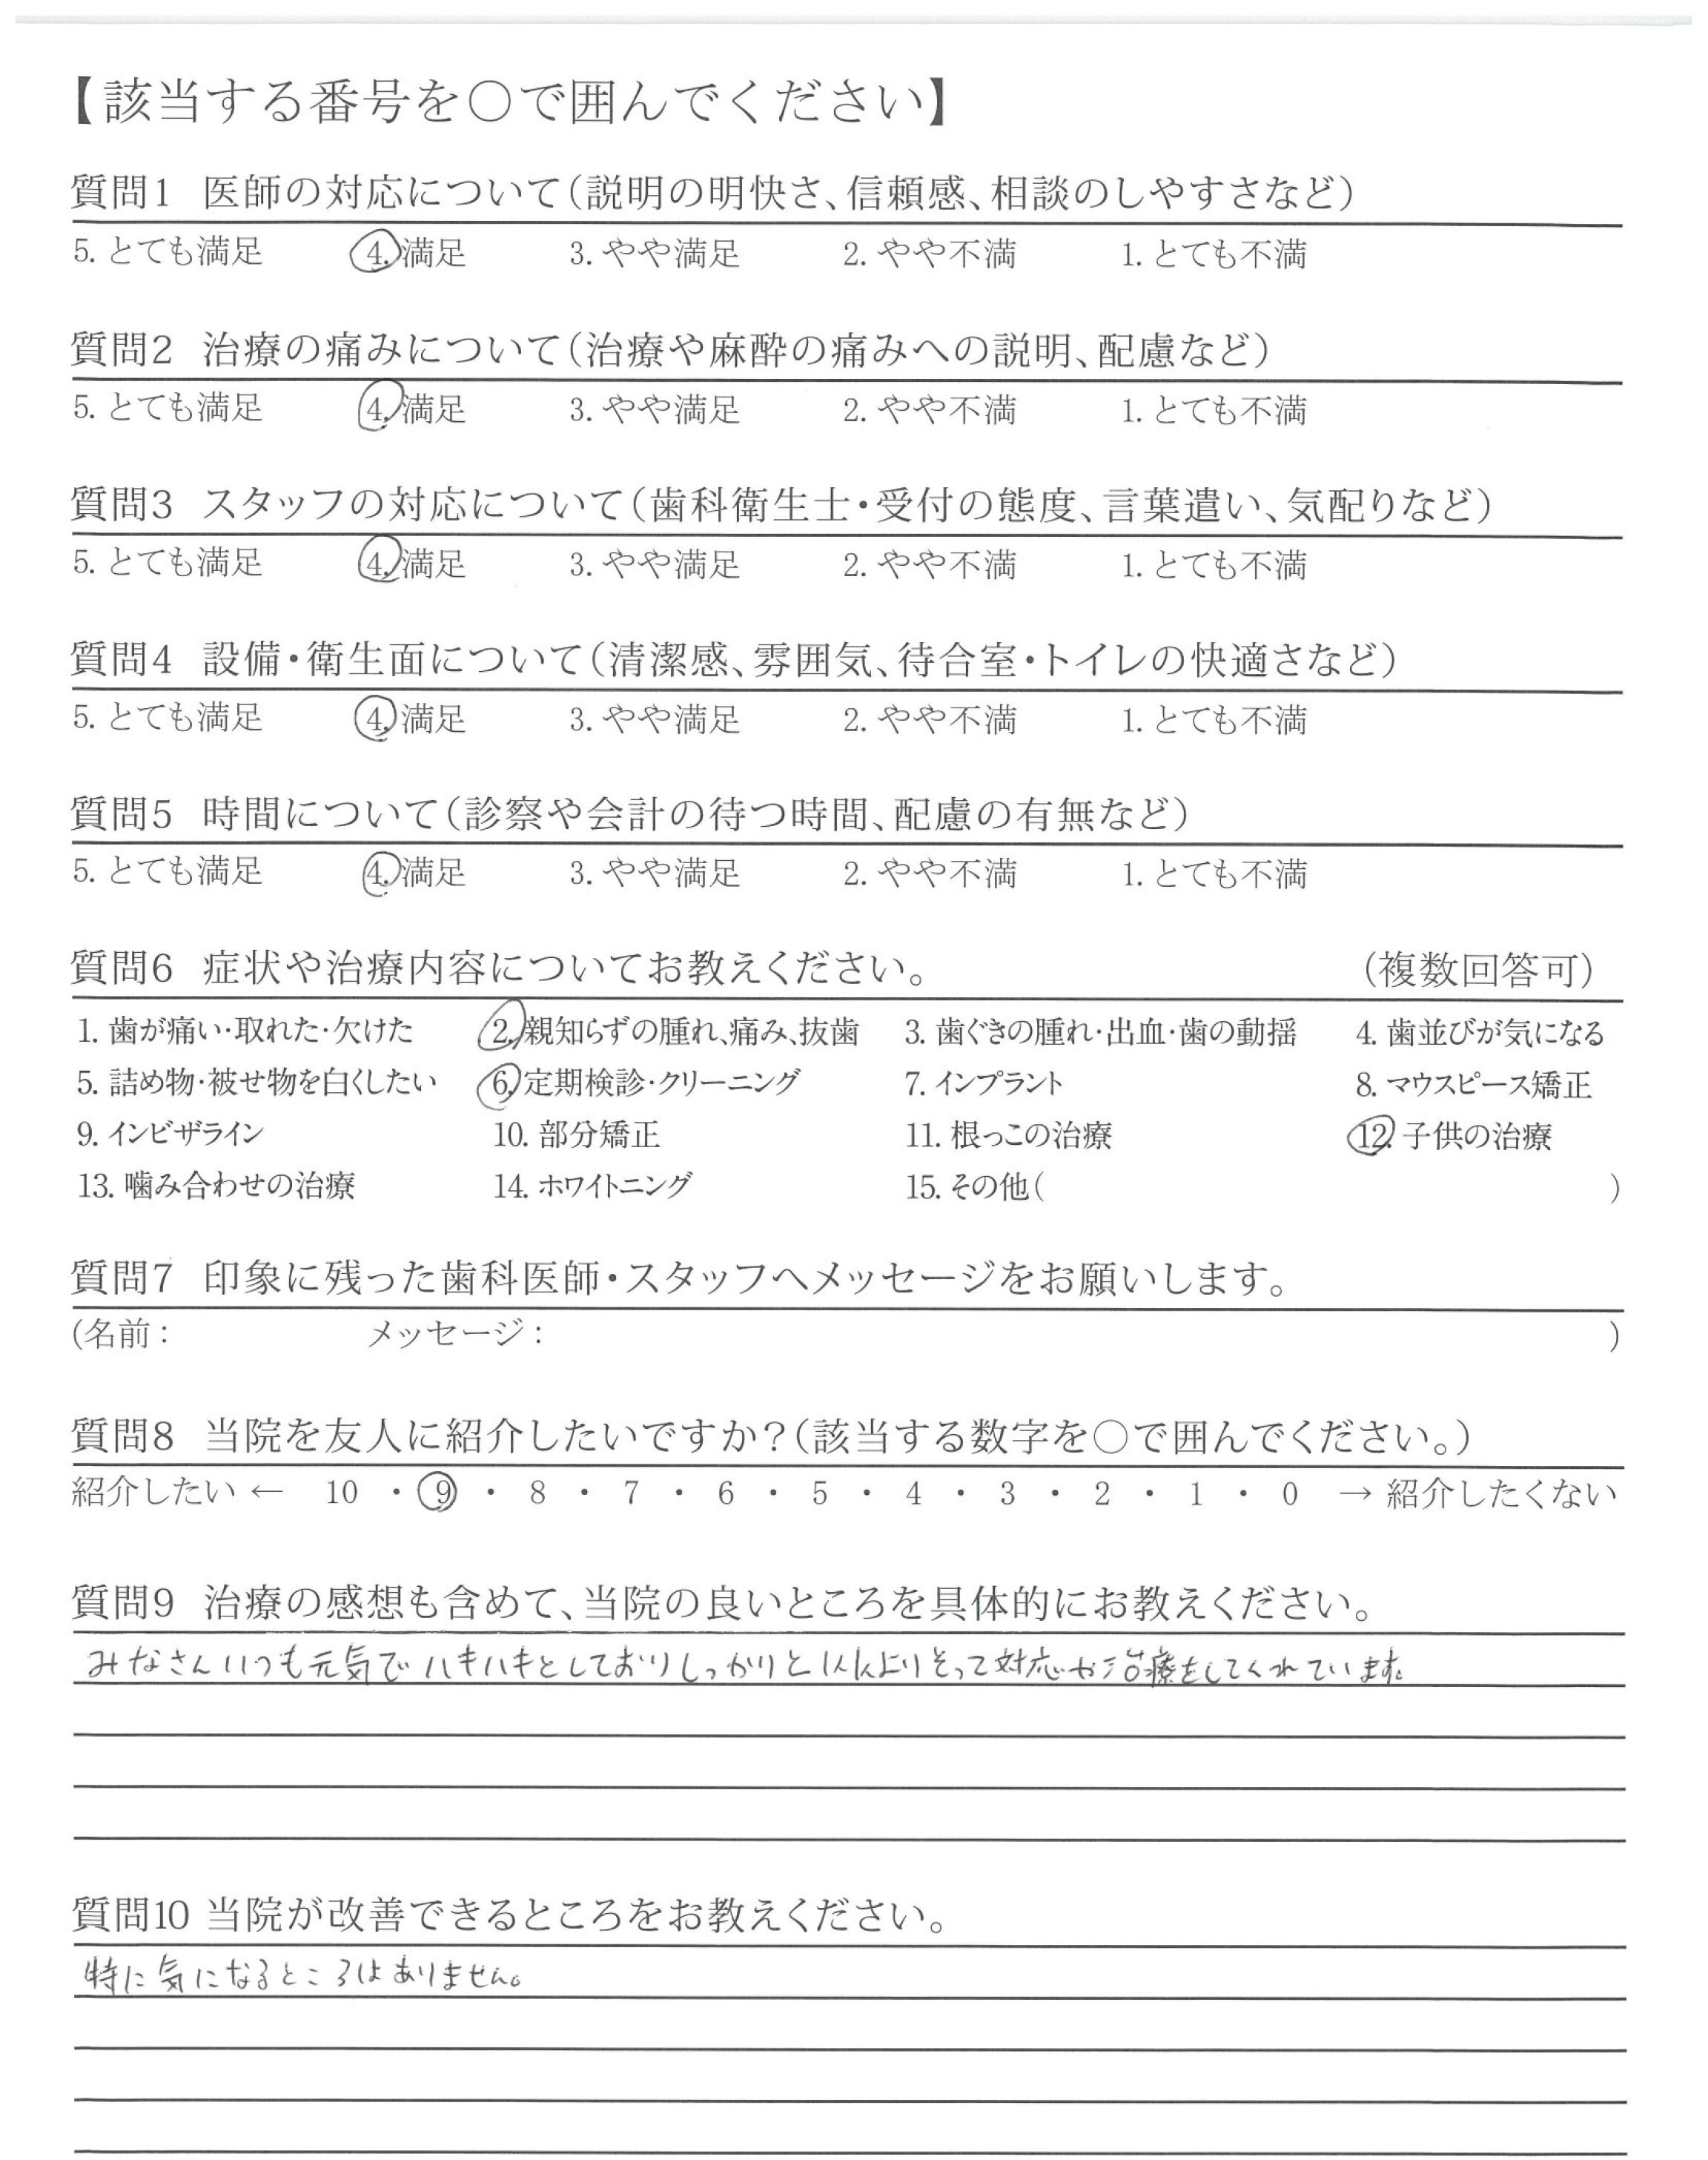 【該当する番号を○で囲んでください】
質問1 医師の対応について（説明の明快さ、信頼感、相談のしやすさなど）
5. とても満足 4. 満足 3. やや満足 2. やや不満 1. とても不満
質問2 治療の痛みについて（治療や麻酔の痛みへの説明、配慮など）
5. とても満足 4. 満足 3. やや満足 2. やや不満 1. とても不満
質問3 スタッフの対応について（歯科衛生士・受付の態度、言葉遣い、気配りなど）
5. とても満足 4. 満足 3. やや満足 2. やや不満 1. とても不満
質問4 設備・衛生面について（清潔感、雰囲気、待合室・トイレの快適さなど）
5. とても満足 4. 満足 3. やや満足 2. やや不満 1. とても不満
質問5 時間について（診察や会計の待つ時間、配慮の有無など）
5. とても満足 4. 満足 3. やや満足 2. やや不満 1. とても不満
質問6 症状や治療内容についてお教えください。 （複数回答可）
1. 歯が痛い・取れた・欠けた 2. 親知らずの腫れ、痛み、抜歯 3. 歯ぐきの腫れ・出血・歯の動揺 4. 歯並びが気になる
5. 詰め物・被せ物を白くしたい 6. 定期検診・クリーニング 7. インプラント 8. マウスピース矯正
9. インビザライン 10. 部分矯正 11. 根っこの治療 12. 子供の治療
13. 噛み合わせの治療 14. ホワイトニング 15. その他（ ）
質問7 印象に残った歯科医師・スタッフへメッセージをお願いします。
（名前： メッセージ： ）
質問8 当院を友人に紹介したいですか？（該当する数字を○で囲んでください。）
紹介したい ← 10 ・ 9 ・ 8 ・ 7 ・ 6 ・ 5 ・ 4 ・ 3 ・ 2 ・ 1 ・ 0 → 紹介したくない
質問9 治療の感想も含めて、当院の良いところを具体的にお教えください。
みなさんいつも元気でハキハキとしておりしっかりと よりそって対応や治療をしてくれています。
質問10 当院が改善できるところをお教えください。
特に気になるところはありません。